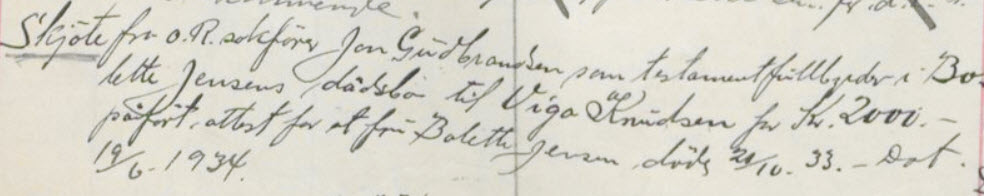 Skjöte fra o.R.sakförer Jon Gudbrandsen som testamentfullbyrder i Bo-
lette Jensens dödsbo til Viga Knudsen for Kr. 2000.-
påfört attest for at fru Bolette Jensen döde 29/10. 33. - Dat.
19/6. 1934.